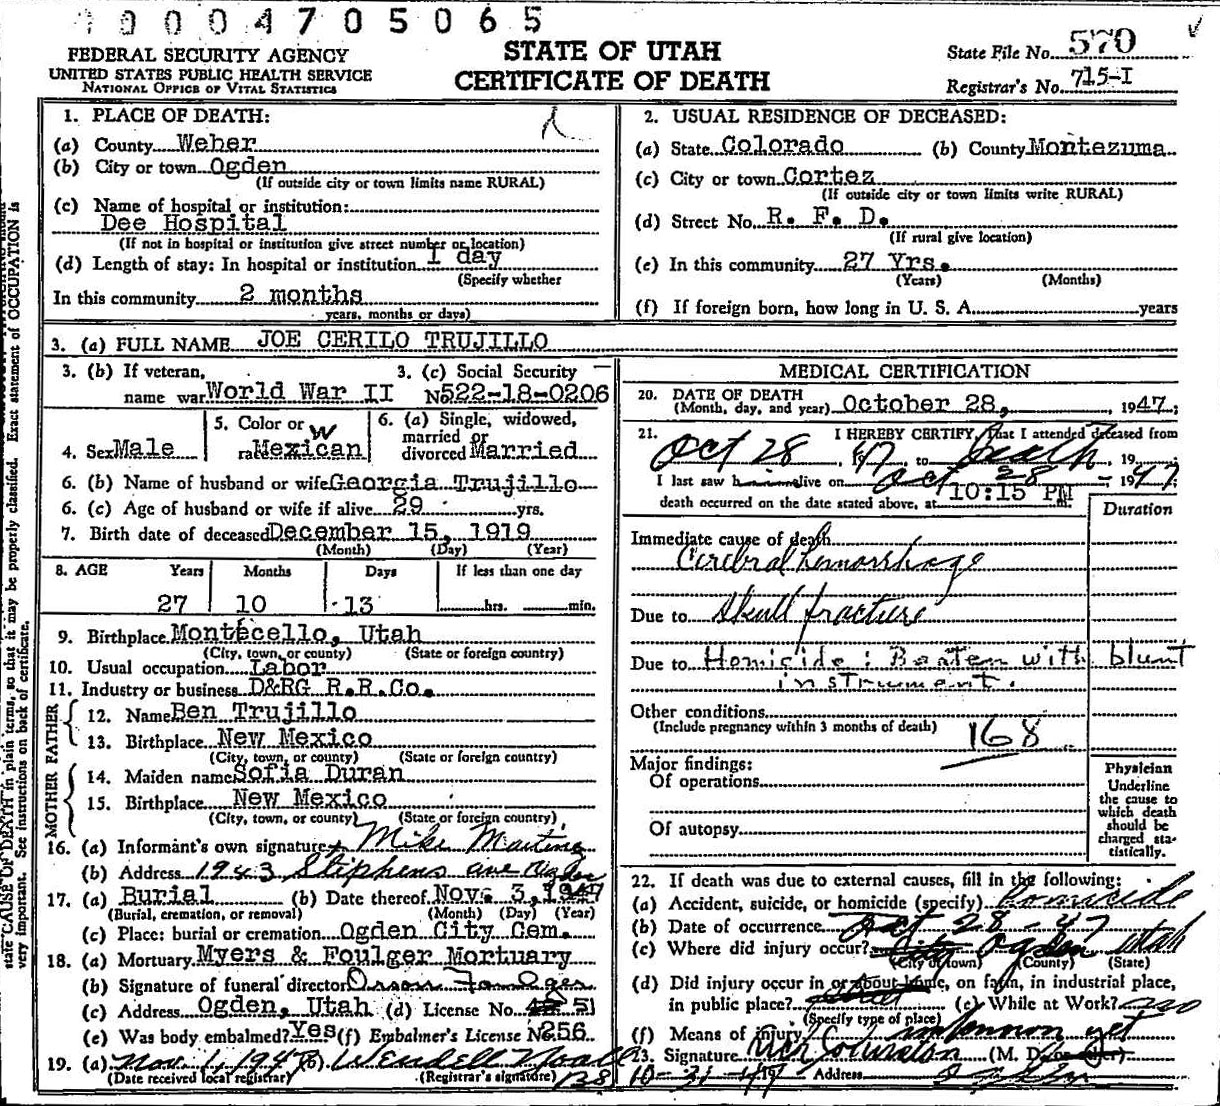 0004705065
FEDERAL SECURITY AGENCY
UNITED STATES PUBLIC HEALTH SERVICE
NATIONAL OFFICE OF VITAL STATISTICS
STATE OF UTAH
CERTIFICATE OF DEATH
State File No. 570
Registrar's No. 715-I
1. PLACE OF DEATH:
(a) County Weber
(b) City or town Ogden
(If outside city or town limits name RURAL)
(c) Name of hospital or institution:
Dee Hospital
(If not in hospital or institution give street number or location)
(d) Length of stay: In hospital or institution 1 day
(Specify whether
In this community 2 months
years, months or days)
2. USUAL RESIDENCE OF DECEASED:
(a) State Colorado (b) County Montezuma
(c) City or town Cortez
(If outside city or town limits write RURAL)
(d) Street No. R. F. D.
(If rural give location)
(e) In this community 27 Yrs.
(Years) (Months)
(f) If foreign born, how long in U. S. A. years
3. (a) FULL NAME JOE CERILO TRUJILLO
3. (b) If veteran, 3. (c) Social Security
name war World War II No 522-18-0206
4. Sex Male
5. Color or W
race Mexican
6. (a) Single, widowed,
married or
divorced Married
6. (b) Name of husband or wife Georgia Trujillo
6. (c) Age of husband or wife if alive 29 yrs.
7. Birth date of deceased December 15, 1919
(Month) (Day) (Year)
8. AGE Years Months Days If less than one day
27 10 13 hrs. min.
9. Birthplace Montecello, Utah
(City, town, or county) (State or foreign country)
10. Usual occupation Labor
11. Industry or business D&RG R.R.Co.
FATHER
12. Name Ben Trujillo
13. Birthplace New Mexico
(City, town, or county) (State or foreign country)
MOTHER
14. Maiden name Sofia Duran
15. Birthplace New Mexico
(City, town, or county) (State or foreign country)
16. (a) Informant's own signature Mike
(b) Address Stephens ave Ogden
17. (a) Burial (b) Date thereof Nov. 3, 1947
(Burial, cremation, or removal) (Month) (Day) (Year)
(c) Place: burial or cremation Ogden City Cem.
18. (a) Mortuary Myers & Foulger Mortuary
(b) Signature of funeral director
(c) Address Ogden, Utah (d) License No. 51
(e) Was body embalmed? Yes (f) Embalmer's License No 256
19. (a) Nov. 1, 1947 (b) Wendell Noall
(Date received local registrar) (Registrar's signature) 138
MEDICAL CERTIFICATION
20. DATE OF DEATH
(Month, day, and year) October 28, 1947;
21. I HEREBY CERTIFY, that I attended deceased from
Oct 28, 1947 to Death, 19
I last saw h alive on Oct 28 - 1947;
death occurred on the date stated above, at 10:15 PM
Duration
Immediate cause of death
Cerebral hemorrhage
Due to Skull fracture
Due to Homicide: Beaten with blunt
instrument.
Other conditions
(Include pregnancy within 3 months of death)
168
Major findings:
Of operations
Of autopsy
Physician
Underline
the cause to
which death
should be
charged sta-
tistically.
22. If death was due to external causes, fill in the following:
(a) Accident, suicide, or homicide (specify) homicide
(b) Date of occurrence Oct 28 - 47
(c) Where did injury occur? City Ogden Utah
(City or town) (County) (State)
(d) Did injury occur in or about home, on farm, in industrial place,
in public place? (e) While at Work? no
(Specify type of place)
(f) Means of injury unknown yet
23. Signature (M. D.
10-31-47 Address Ogden
state CAUSE OF DEATH in plain terms, so that it may be properly classified. Exact statement of OCCUPATION is
very important. See instructions on back of certificate.